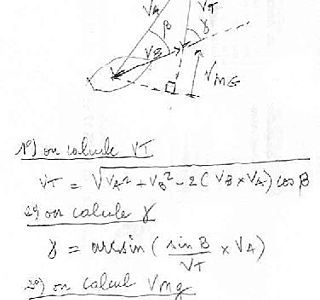 VA
VT
β
γ
VB
VMG
1°) on calcule VT
VT = √VA² + VB² - 2 ( VB × VA ) cos β
2°) on calcule γ
γ = arcsin ( sin β / VT × VA )
3°) on calcul VMG